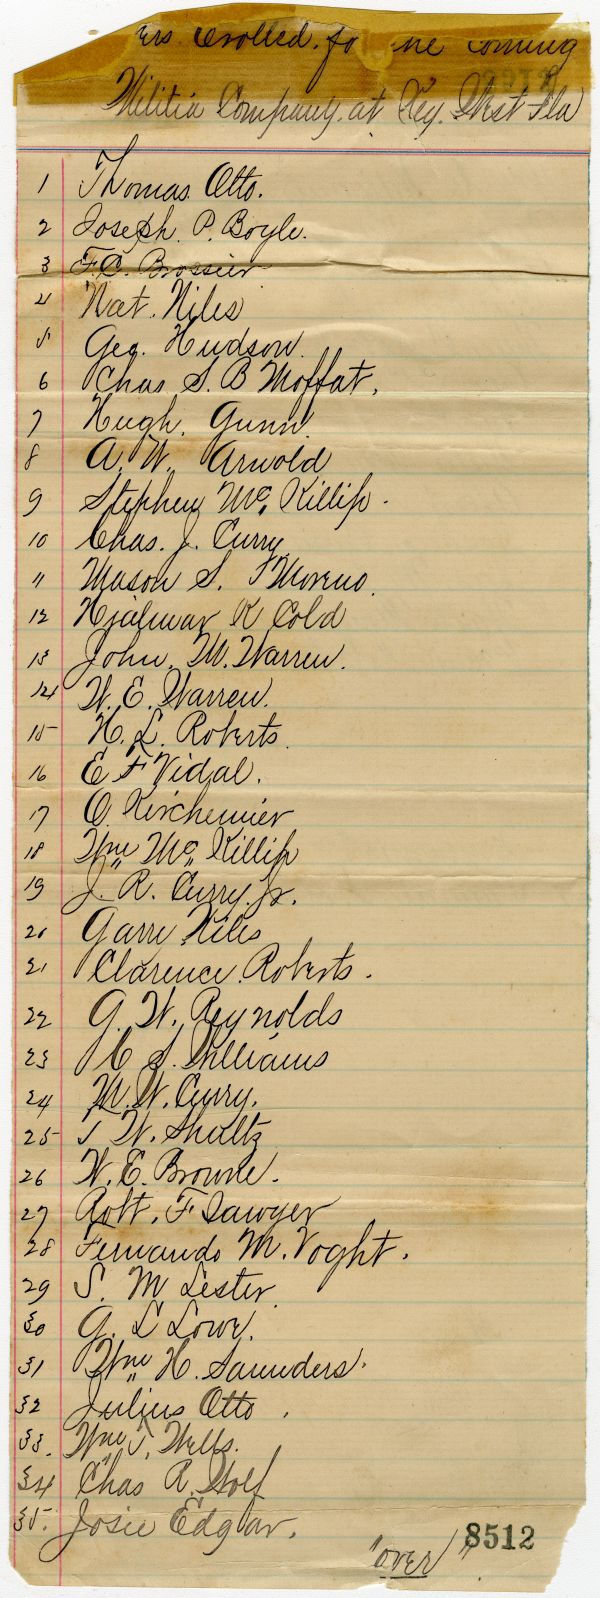 ers Enrolled for the Coming
Militia Company at Key West Fla
1 Thomas Otto.
2 Joseph P. Boyle.
3 F. C. Brossier
4 Nat. Niles
5 Geo. Hudson
6 Chas S. B Moffat.
7 Hugh Gunn
8 A. W. Arnold
9 Stephen Mc Killip.
10 Chas. J. Curry
11 Mason S. Moreno.
12 Hjalmar K Cold
13 John. M. Warren.
14 W. E. Warren.
15 H. L. Roberts
16 E F Vidal.
17 O. Kircheinier
18 Wm Mc Killip
19 J. R. Curry. Jr.
20 Niles
21 Clarence Roberts.
22 G. W. Reynolds
23 C S. Williams
24 M. W. Curry.
25 T W. Shultz
26 W. E. Browne.
27 Robt. F Sawyer
28 Fernando M. Voght.
29 S. M Lester
30 G. L Lowe.
31 Wm H. Saunders.
32 Julius Otto.
33. Wm T. Wells.
34 Chas R. Wolf
35. Josie Edgar.
"over". 8512